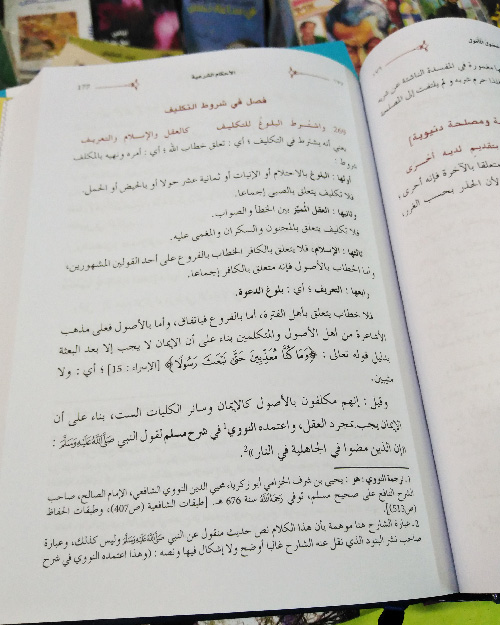 الأحكام الشرعية
177
فصل في شروط التكليف
260 واشترط البلوغ للتكليف كالعقل والإسلام والتعريف
يعني أنه يشترط في التكليف ؛ أي : تعلق خطاب الله ؛ أي : أمره ونهيه بالمكلف
شروط :
أولها : البلوغ بالاحتلام أو الإنبات أو ثمانية عشر حولا أو بالحيض أو الحمل.
فلا تكليف يتعلق بالصبي إجماعا.
وثانيها : العقل المميّز بين الخطأ والصواب.
فلا تكليف يتعلق بالمجنون والسكران والمغمى عليه.
ثالثها : الإسلام، فلا يتعلق بالكافر الخطاب بالفروع على أحد القولين المشهورين،
وأما الخطاب بالأصول فإنه متعلق بالكافر إجماعا.
رابعها : التعريف ؛ أي : بلوغ الدعوة.
فلا خطاب يتعلق بأهل الفترة، أما بالفروع فباتفاق، وأما بالأصول فعلى مذهب
الأشاعرة من أهل الأصول والمتكلمين بناء على أن الإيمان لا يجب إلا بعد البعثة
بدليل قوله تعالى : ﴿وَمَا كُنَّا مُعَذِّبِينَ حَتَّى نَبْعَثَ رَسُولًا﴾ [الإسراء : 15] ؛ أي : ولا
مثيبين.
وقيل : إنهم مكلفون بالأصول كالإيمان وسائر الكليات الست، بناء على أن
الإيمان يجب بمجرد العقل، واعتمده النووي1 في شرح مسلم لقول النبي ﷺ :
«إن الذين مضوا في الجاهلية في النار»2.
1. ترجمة النووي : هو : يحيى بن شرف الحزامي أبو زكريا، محيي الدين النووي الشافعي، الإمام الصالح، صاحب
الشرح النافع على صحيح مسلم، توفي رَحِمَهُ اللَّهُ سنة 676 هـ. [طبقات الشافعية (ص407)، وطبقات الحفاظ
(ص513)].
2. عبارة الشارح هنا موهمة بأن هذا الكلام نص حديث منقول عن النبي ﷺ وليس كذلك، وعبارة
صاحب نشر البنود الذي نقل عنه الشارح غالبا أوضح ولا إشكال فيها ونصه : (وهذا اعتمده النووي في شرح
ومصلحة دنيوية]
بتقديم لديه أخرى
متعلقا بالآخرة فإنه أحرى،
لأن الحذر بحسب الضرر